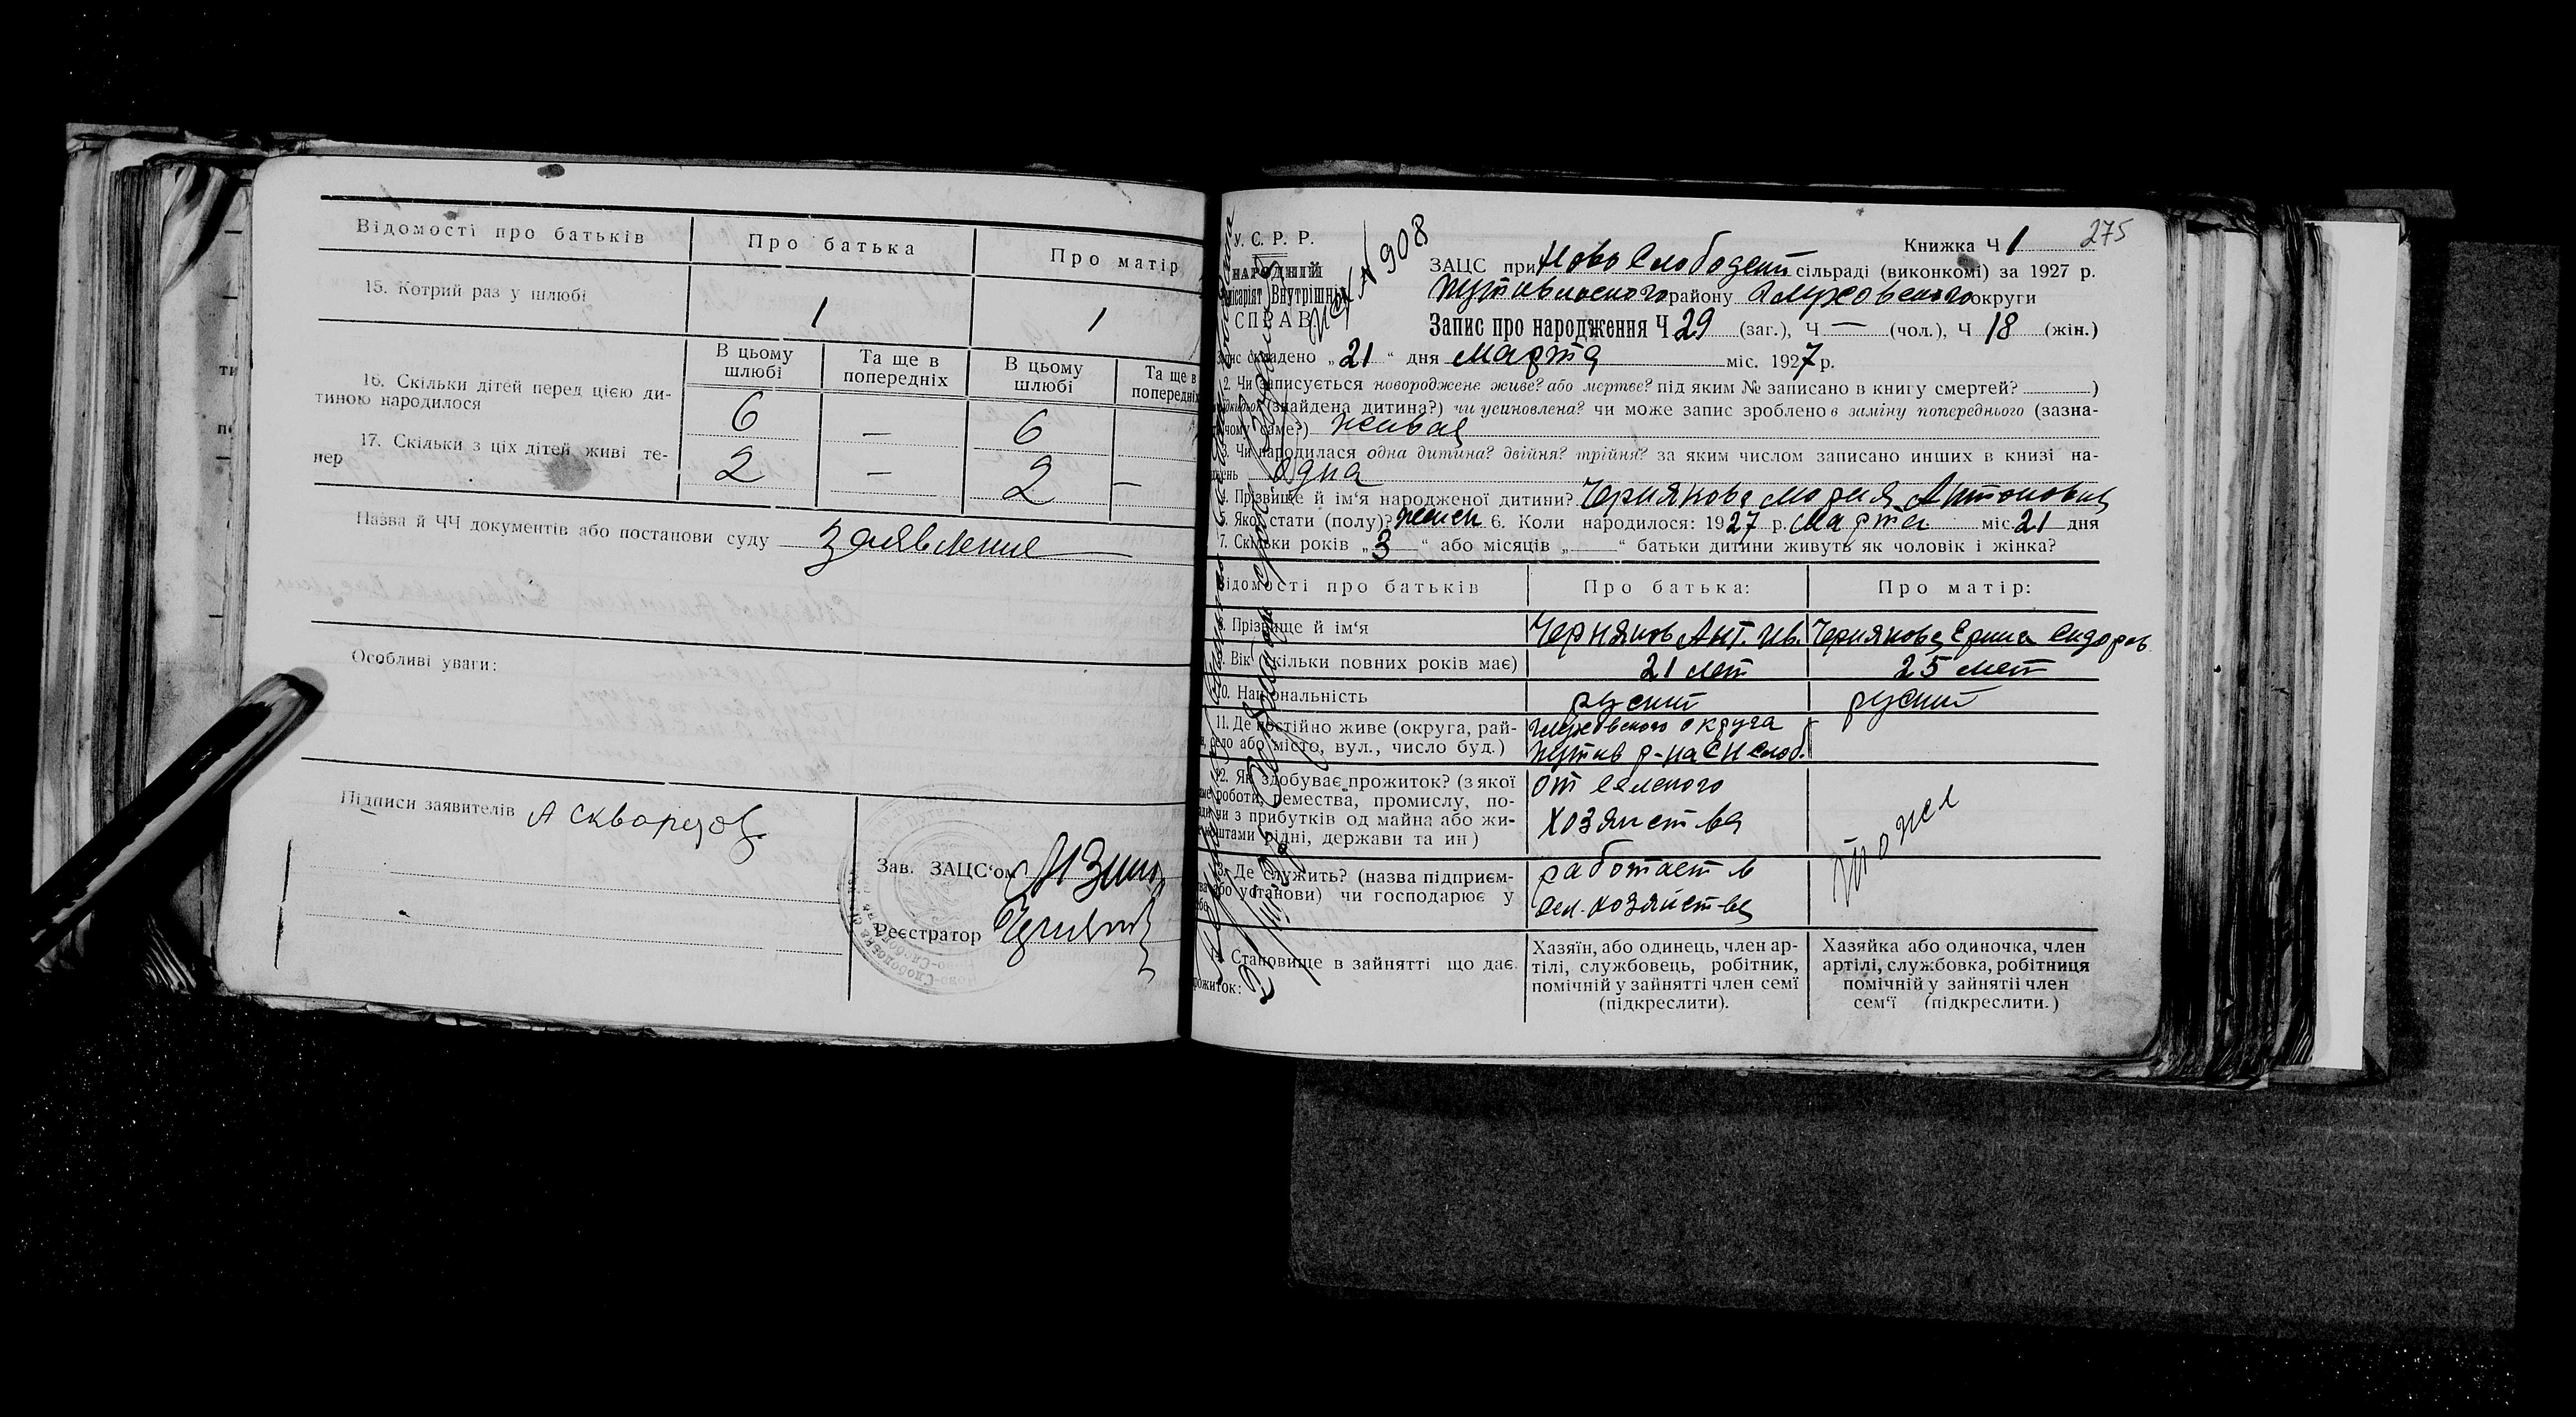 Відомості про батьків
Про батька
Про матір
15. Котрий раз у шлюбі
1
1
В цьому шлюбі
Та ще в попередніх
В цьому шлюбі
Та ще в попередніх
16. Скільки дітей перед цією ди-
тиною народилося
6
—
6
17. Скільки з ціх дітей живі те-
пер
2
—
2
—
Назва й ЧЧ документів або постанови суду заявление
Особливі уваги:
Підписи заявителів А Скворцов
Зав. ЗАЦС‘ом
Реєстратор
275
У. С. Р. Р.
НАРОДНІЙ
Внутрішніх
СПРАВ
№ 908
Книжка Ч 1
ЗАЦС при Ново Слободский сільраді (виконкомі) за 1927 р.
Путивльского району Глуховского округи
Запис про народження Ч 29 (заг.), Ч — (чол.), Ч 18 (жін.)
складено „21“ дня Марта міс. 1927 р.
2. Чи записується новороджене живе? або мертве? під яким № записано в книгу смертей? )
(знайдена дитина?) чи усиновлена? чи може запис зроблено в заміну попереднього (зазна-
чому саме?) живая
3. Чи народилася одна дитина? двійня? трійня? за яким числом записано инших в книзі на-
одна
4. Прізвище й ім‘я народженої дитини? Чернякова Мария Антоновна
5. Якої стати (полу)? женск 6. Коли народилося: 1927 р. Марта міс. 21 дня
7. Скільки років „3“ або місяців „—“ батьки дитини живуть як чоловік і жінка?
Відомості про батьків
Про батька:
Про матір:
8. Прізвище й ім‘я
Черняков Ант. Ив.
Чернякова Ерина Сидоров
9. Вік скільки повних років має)
21 лет
25 лет
10. Національність
руский
руский
11. Де постійно живе (округа, рай-
село або місто, вул., число буд.)
Глуховского округа
Путив р-на С Н Слоб.
12. Як здобуває прожиток? (з якої
роботи, ремества, промислу, по-
чи з прибутків од майна або жи-
коштами рідні, держави та ин)
от селского
хозяиства
тоже
13. Де служить? (назва підприєм-
або установи) чи господарює у
работает в
сел. хозяиства
Становище в зайнятті що дає
прожиток:
Хазяїн, або одинець, член ар-
тілі, службовець, робітник,
помічній у зайнятті член семї
(підкреслити).
Хазяйка або одиночка, член
артілі, службовка, робітниця
помічній у зайнятії член
сем‘ї (підкреслити.)